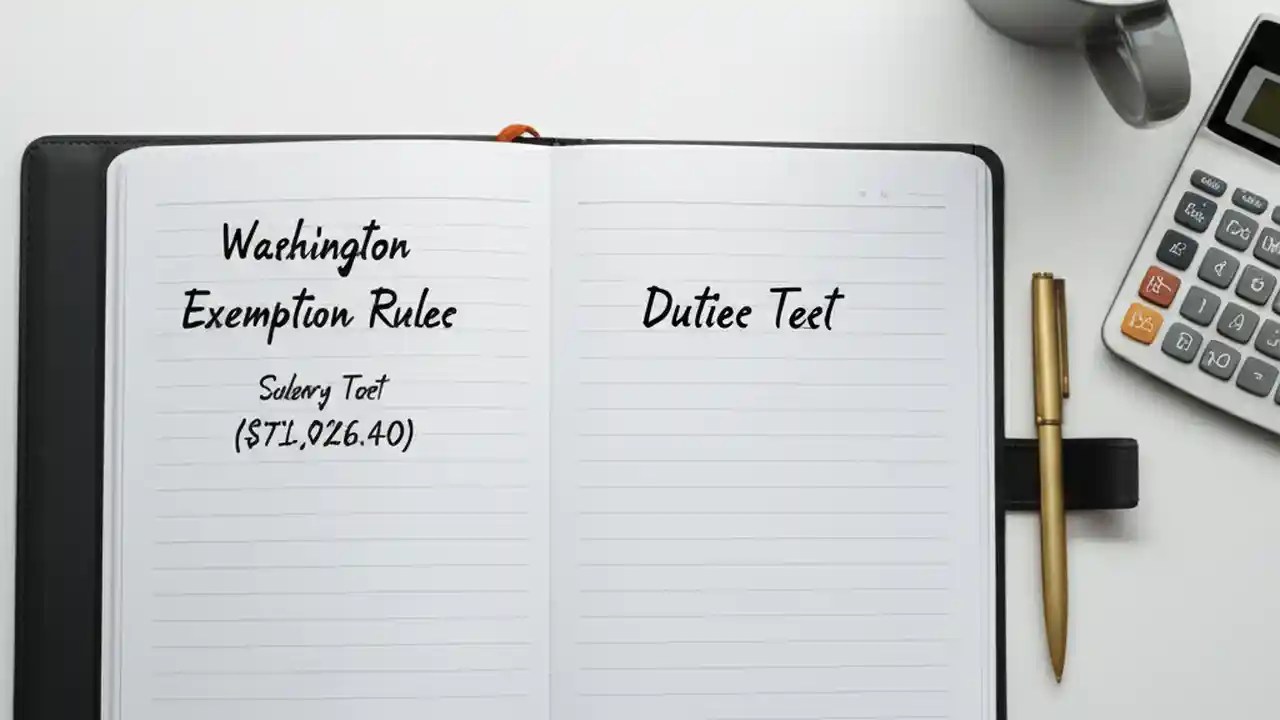 Washington
Exemption Rules
Salary Test
($71,026.40)
Duties Test